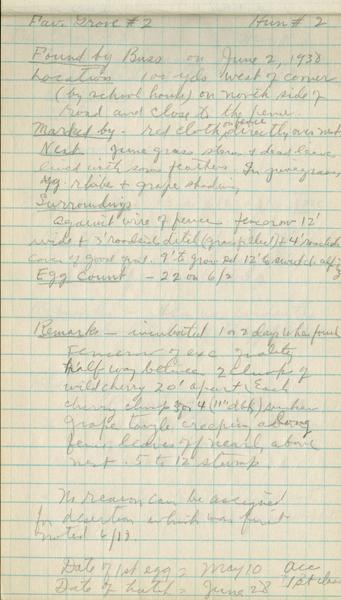 Fav. Grove #2 Hun # 2
Found by Buss on June 2, 1938
Location 100 yds west of corner
(by school house) on north side of
road and close to the fence.
Marked by - red cloth directly over nest
on fence
Nest June grass stems & dead leaves
lined with some feathers. In june grass,
& grape shading
Surroundings
Against wire of fence fencerow 12'
wide + 3' roadside ditch (grass) + 4' roadside
cover of good qual. 9' to gravel rd 12' to
Egg Count - 22 on 6/2
Remarks - incubated 1 or 2 days when found
Fencerow of exc. quality
Half way between 2 clumps of
wild cherry 20' apart. Each
cherry clump 3 or 4 (1" dbh)
grape tangle creeping along
fence, leaves of near, above
nest. 5 to 12" stems
No reason can be assigned
for desertion which was first
noted 6/18
Date of 1st egg = May 10 acc
Date of hatch = June 28 1st class